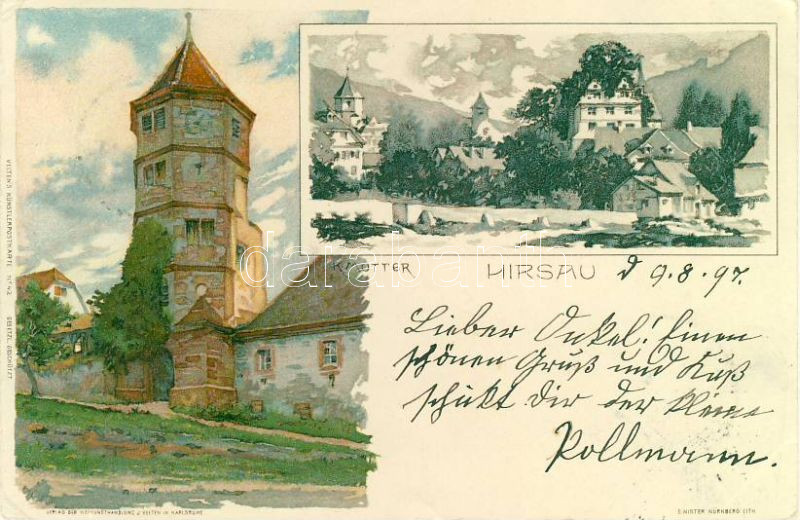 K. MUTTER
HIRSAU d 9.8.97.
Lieber Onkel! Einen
schönen Gruß und Kuß
schickt Dir der kleine
Pollmann.
VELTEN'S KÜNSTLERPOSTKARTE No 42 GESETZL. GESCHÜTZT
VERLAG DER HOFKUNSTHANDLUNG J. VELTEN IN KARLSRUHE
E. NISTER NÜRNBERG LITH.
darabanth